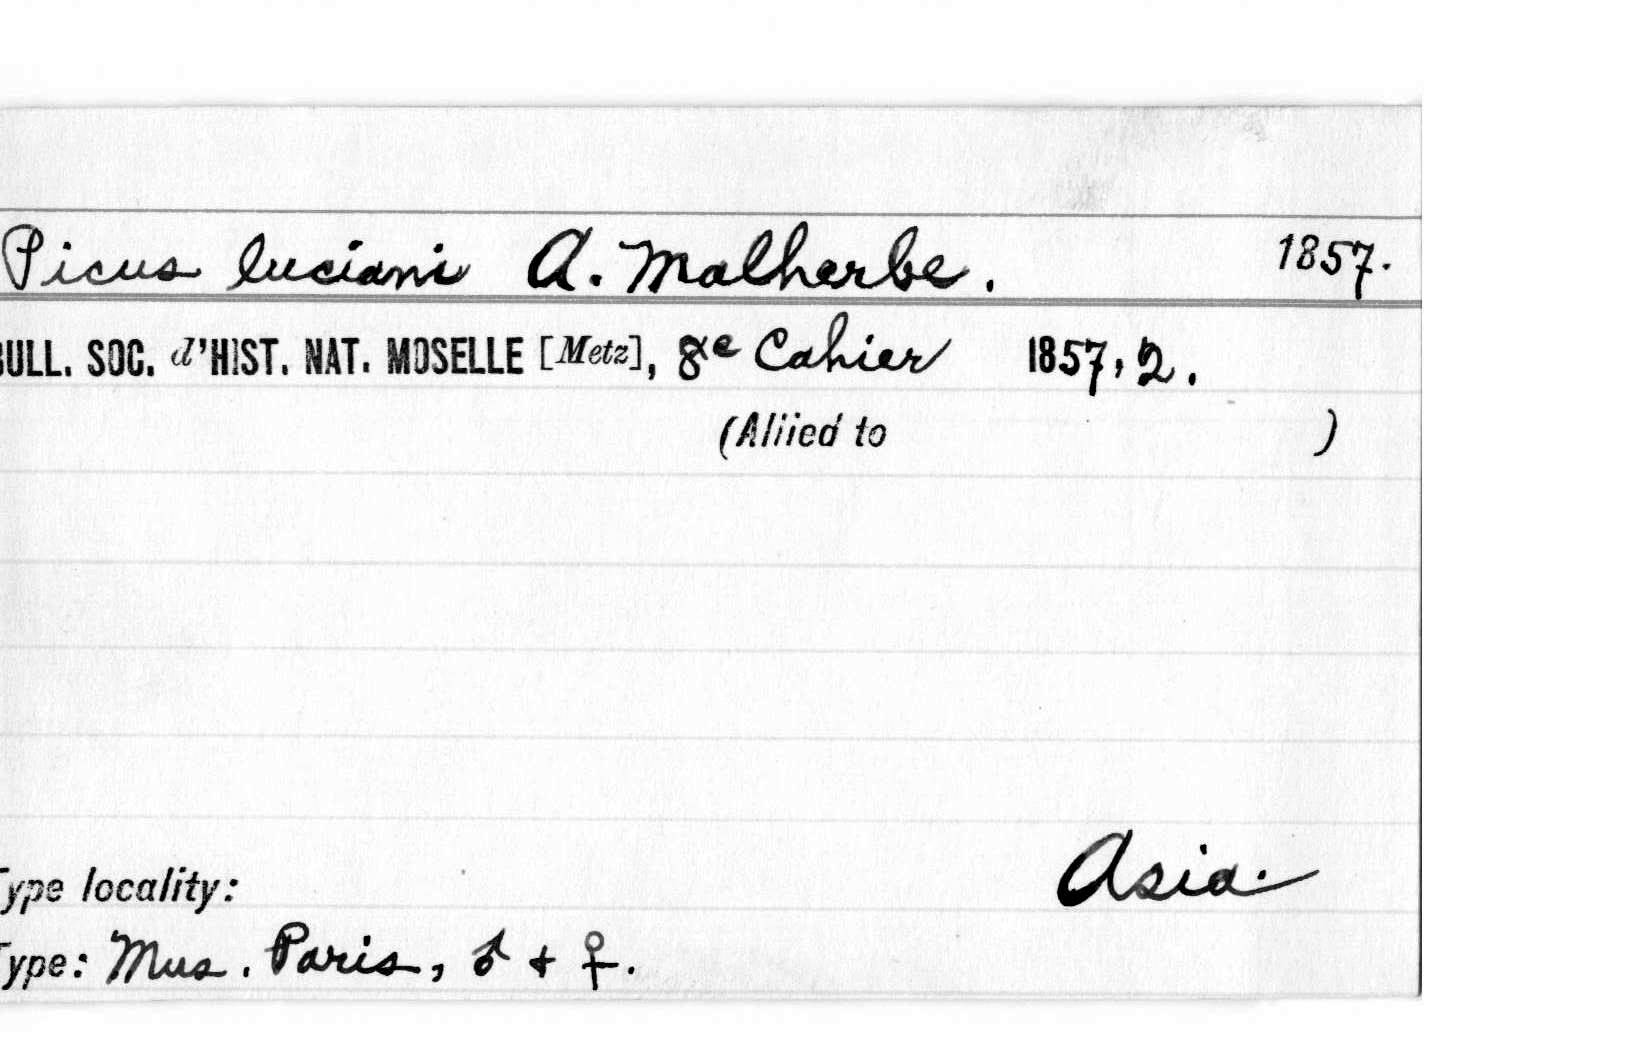 Picus luciani A. Malherbe. 1857.
BULL. SOC. d'HIST. NAT. MOSELLE [Metz], 8e Cahier 1857, 2.
(Allied to )
Type locality: Asia.
Type: Mus. Paris, ♂ + ♀.